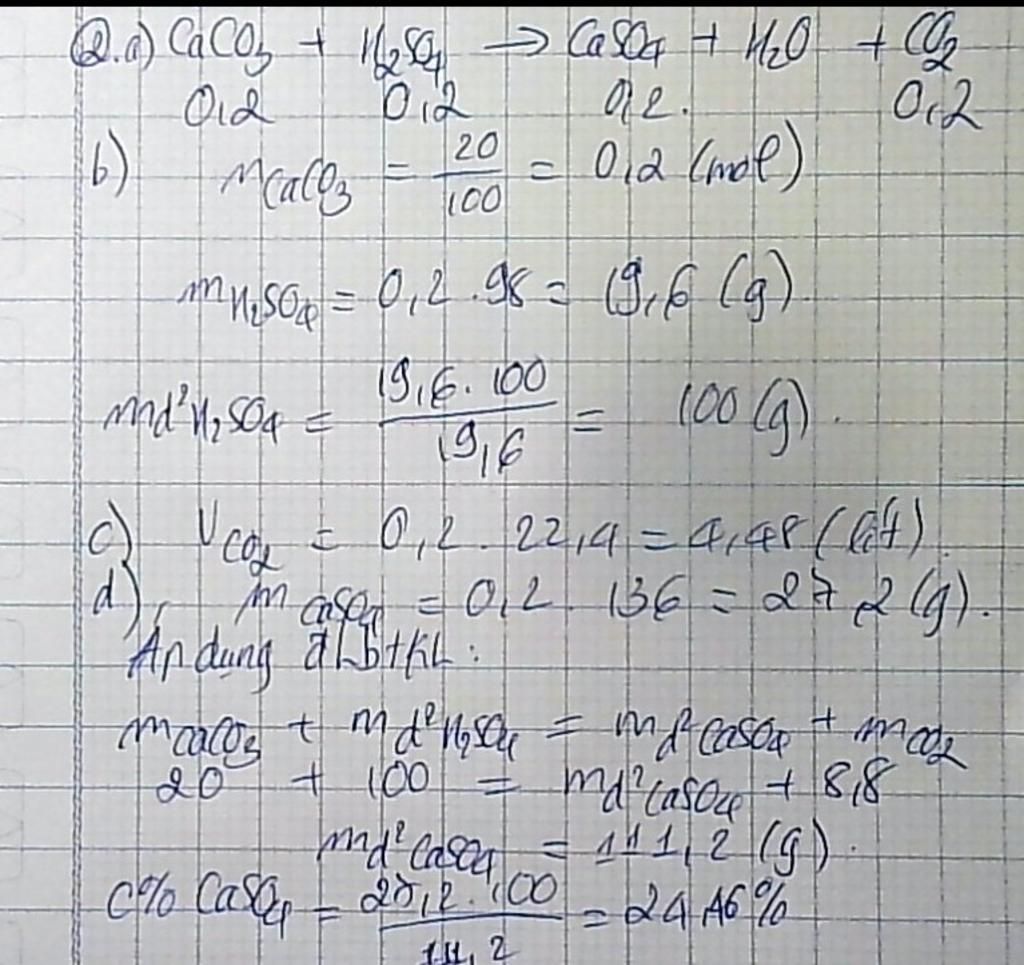 2.a) CaCO3 + H2SO4 → CaSO4 + H2O + CO2
0,2 0,2 0,2. 0,2
b) nCaCO3 = 20/100 = 0,2 (mol)
mH2SO4 = 0,2 . 98 = 19,6 (g).
md²H2SO4 = 19,6. 100/19,6 = 100 (g).
c) VCO2 = 0,2. 22,4 = 4,48 (lít).
d), mCaSO4 = 0,2. 136 = 27 2 (g).
Áp dụng ĐLbtKL:
mCaCO3 + md²H2SO4 = md²CaSO4 + mCO2
20 + 100 = md²CaSO4 + 8,8
md²CaSO4 = 111,2 (g).
C% CaSO4 = 27,2. 100/111,2 = 24,46%